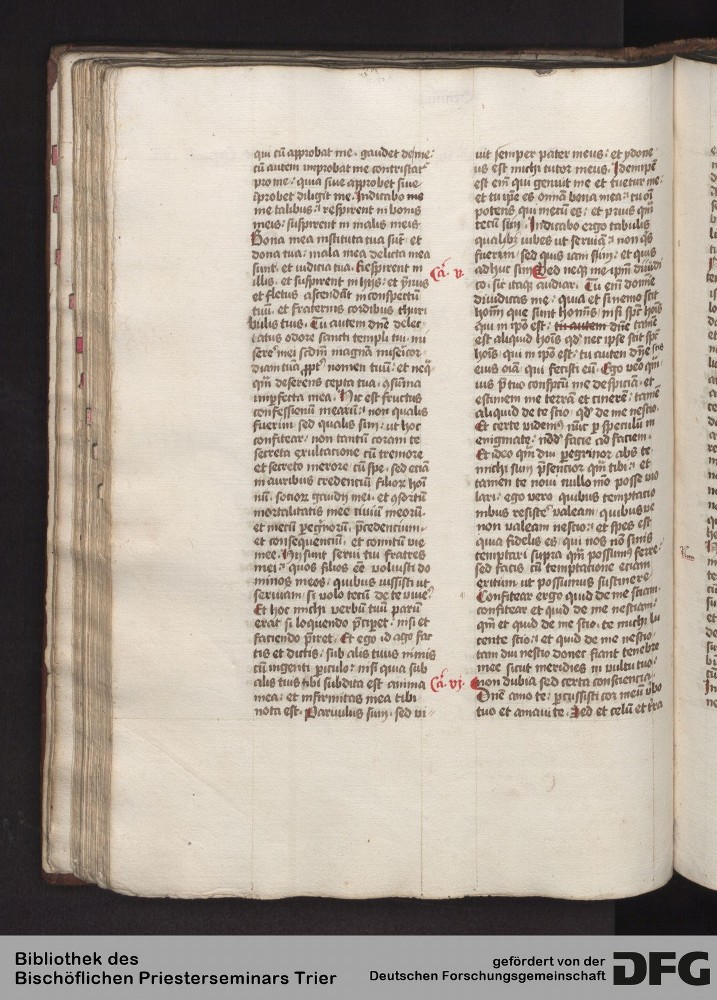 qui cū approbat me · gaudet de me:
cū autem improbat me contristat͛
pro me: quia siue approbet siue
īprobet diligit me. Indicabo
me talibus: respirent in bonis
meis: suspirent in malis meis
Bona mea instituta tua sūt et
dona tua: mala mea delicta mea
sunt: et iudicia tua. Respirent in
illis et suspirent in hijs: et ymnus
et fletus ascendāt in conspectū
tuū: et fraternis cordibus thuri
bulis tuis. Tu autem dn̄e delec
tatus odore sancti templi tui mi
sere⁹ mei scdm̄ magnā misericor
diam tuā ꝓpt͛ nomen tuū: et neq̄
qm̄ deserens cepta tua · ꝯsūma
imperfecta mea. Hic est fructus
confessionū mearū: non qualis
fuerim sed qualis sim: ut hoc
confitear: non tantū coram te
secreta exultacione cū tremore
et secreto merore cū spe · sed eciā
in auribus credenciū filior͛ hoīm
nū · socior͛ gaudij mei · et ꝯsortū
mortalitatis mee ciuiū meorū ·
et mecū pegrinorū p̄cedencium ·
et consequenciū · et comitū vie
mee · Hij sunt serui tui fratres
mei: quos filios ēē voluisti do
minos meos: quibus iussisti ut
seruiam: si volo tecū de te viue͛
Et hoc michi verbū tuū parū
erat si loquendo p̄cipet · nisi et
faciendo p̄iret. Et ego id ago fac
tis et dictis: sub alis tuis nimis
cū ingenti piculo: nisi quia sub
alis tuis tibi subdita est anima
mea: et infirmitas mea tibi
nota est · Paruulus sum · sed vi
uit semper pater meus: et ydone
us est michi tutor meus. Idempē
est em̄ qui genuit me et tuetur me:
et tu ip̄e es om̄ia bona mea: tu oī
potens qui mecū es: et prius qm̄
tecū sim. Indicabo ergo talibus
qualib; iubes ut seruiā: non q̄s
fuerim: sed quis iam sim: et quis
adhuc sim
Ca͛. v.
Sed neq; me ip̄m diiudi
co · sit itaq; audiar. Tu em̄ domīe
diiudicas me: quia et si nemo scit
hoīm que sunt hoīnis: nisi spc̄ hoīs
qui in ip̄o est: tu autem dn̄e tamē
est aliquid hoīs qd̄ nec ip̄e scit spc̄
hoīs: qui in ip̄o est: tu autem dn̄e scis
eius oīa: qui fecisti eū. Ego vero qm̄
uis p̄ tuo conspcū me despiciā · et
estimem me terrā et cinerē: tamē
aliquid de te scio · qd̄ de me nescio.
Et certe videm⁹ nūc p speculū in
enigmate: nōd facie ad faciem.
Et ideo qm̄ diu peregrinor abs te
michi sum p̄sencior qm̄ tibi: et
tamen te noui nullo mō posse vio
lari: ego vero quibus temptacio
nibus resiste͛ valeam quibus ve
non valeam nescio: et spes est
quia fidelis es: qui nos nō sinis
temptari supra qm̄ possum⁹ ferre·
sed facis cū temptacione eciam
exitum ut possumus sustinere
Confitear ergo quid de me sciam ·
confitear et quid de me nesciam:
qm̄ et quid de me scio · te michi lu
cente scio: et quid de me nescio
tam diu nescio donec fiant tenebre
mee sicut meridies in vultu tuo.
Ca͛. vj.
Non dubia sed certa consciencia
Dn̄e amo te: pcussisti cor meū v̄bo
tuo et amaui te. Sed et celū et t͛ra
Bibliothek des
Bischöflichen Priesterseminars Trier
gefördert von der
Deutschen Forschungsgemeinschaft
DFG